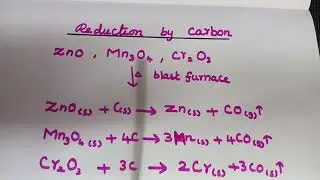 Reduction by Carbon
ZnO , Mn₃O₄ , Cr₂O₃
↓ Δ blast furnace
ZnO(s) + C(s) → Zn(s) + CO(g)↑
Mn₃O₄(s) + 4C → 3Mn(s) + 4CO(g)↑
Cr₂O₃ + 3C → 2Cr(s) + 3CO(s)↑